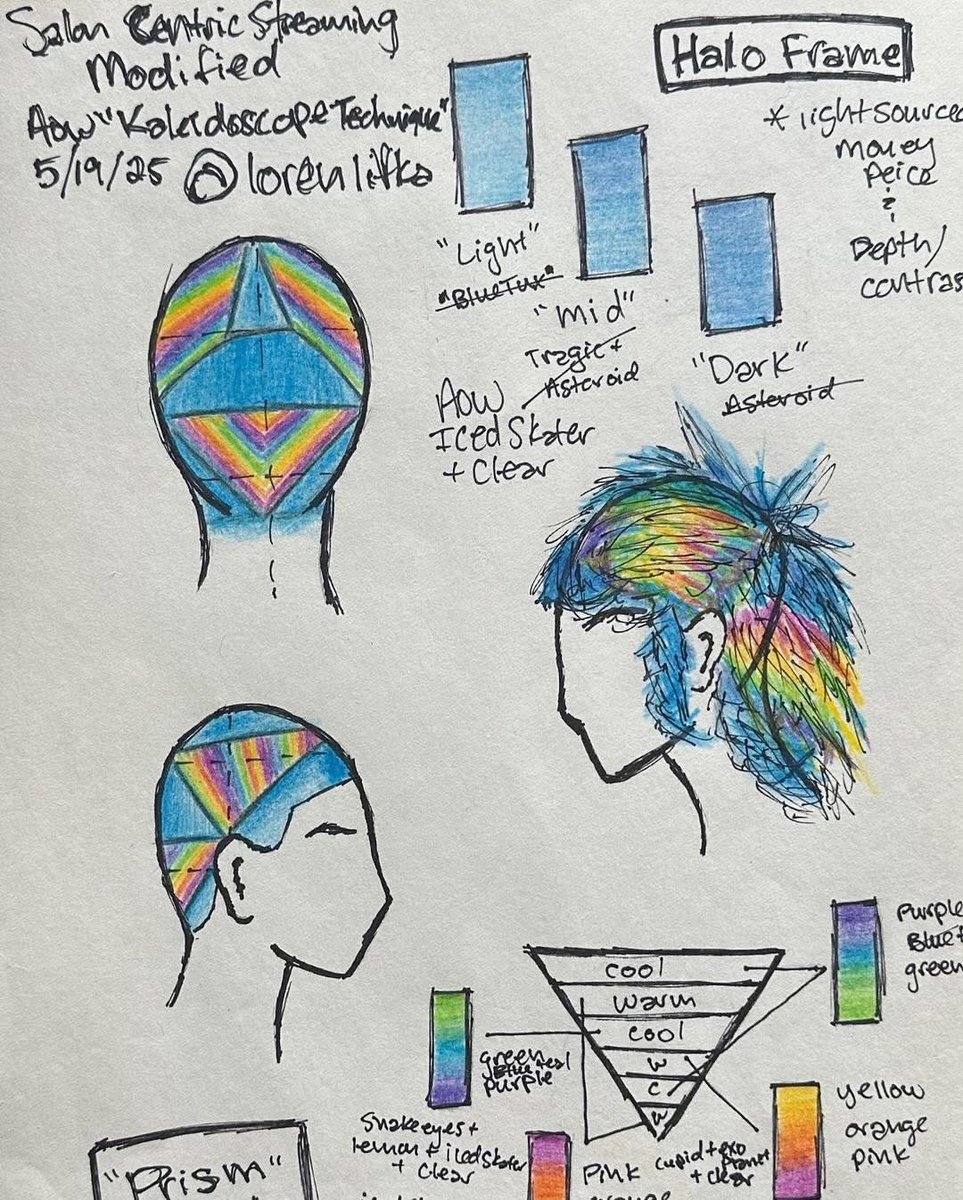 Salon Centric Streaming
Modified
AOW "Kaleidoscope Technique"
5/19/25 @lorenlifka
Halo Frame
* lightsourced
money
peice
&
Depth/
contras
"Light"
"BlueTux"
"mid"
Tragic +
Asteroid
"Dark"
Asteroid
AOW
Iced Skater
+ Clear
cool
warm
cool
w
c
w
purple
Blue+
green
green
Blue teal
purple
Snake eyes +
lemon + iced skater
+ Clear
yellow
orange
pink
Cupid + exo
+ clear
pink
orange
"Prism"